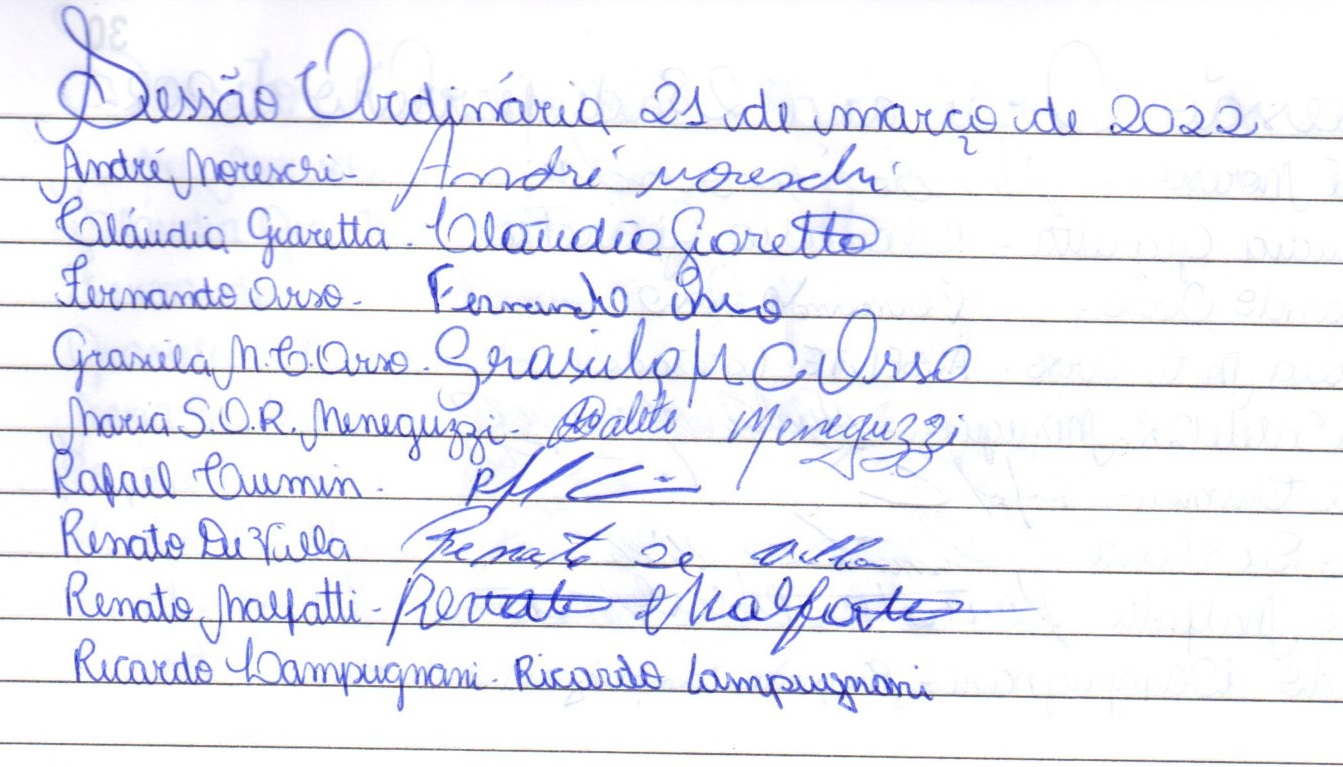 Sessão Ordinária 21 de março de 2022
André Moreschi - André Moreschi
Cláudia Giaretta. Claúdia Giaretta
Fernando Orso - Fernando Orso
Grasiela M. C. Orso. Grasiela M C Orso
Maria S.O.R. Meneguzzi - Odalete Meneguzzi
Rafael Cumin.
Renato De Villa Renato De Villa
Renato Malfatti - Renato Malfatti
Ricardo Lampugnani. Ricardo Lampugnani